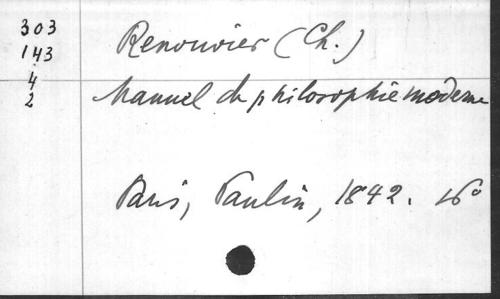 303
143
4
2
Renouvier (Ch.)
Manuel de philosophie moderne
Paris, Paulin, 1842. 16°